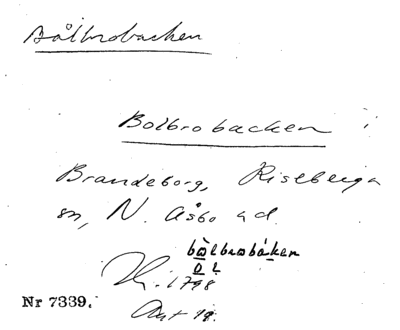 Bålbrobacken
Bolbrobacken i
Brandeborg, Riseberga
sn, N. Åsbo hd.
bòlbrobáken
O L
1798
Nr 7339.